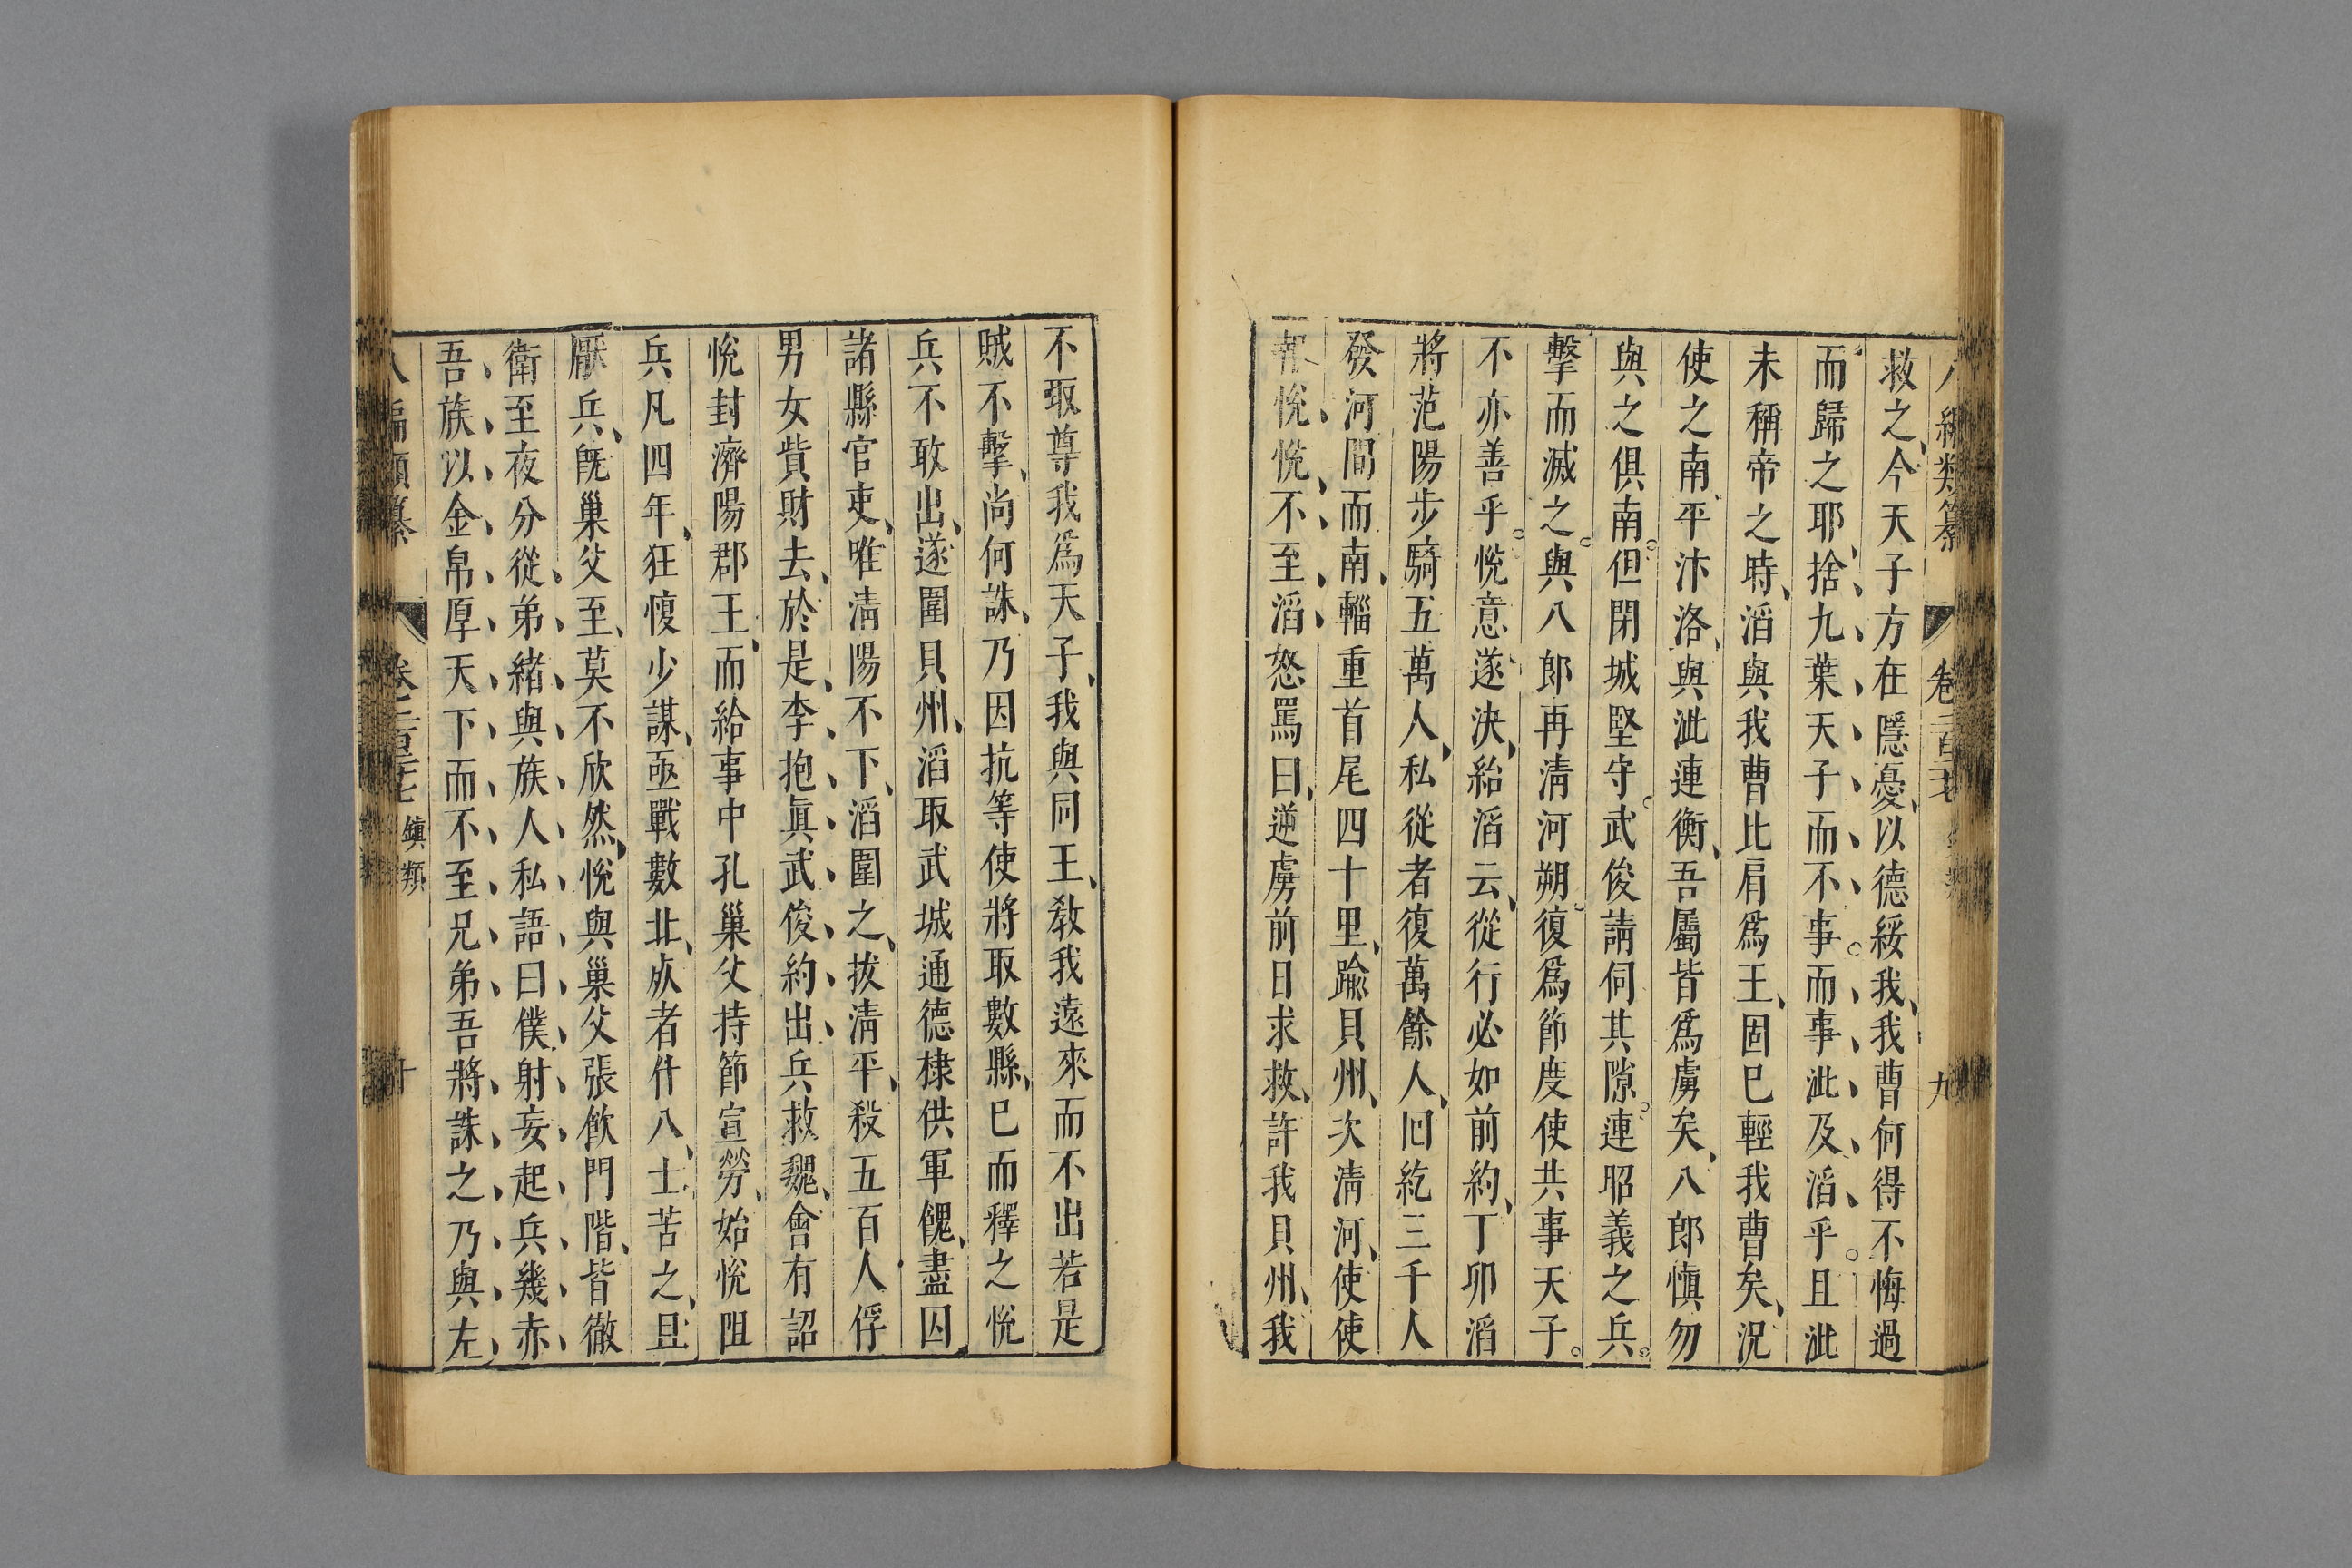 八編類纂 卷二百三十七 九
救之今天子方在隱憂以德綏我我曹何得不悔過
而歸之耶捨九葉天子而不事而事泚及滔乎且泚
未稱帝之時滔與我曹比肩爲王固已輕我曹矣況
使之南平汴洛與泚連衡吾屬皆爲虜矣八郎愼勿
與之俱南但閉城堅守武俊請伺其隙連昭義之兵
擊而滅之與八郎再淸河朔復爲節度使共事天子
不亦善乎悅意遂決紿滔云從行必如前約丁卯滔
將范陽步騎五萬人私從者復萬餘人囘紇三千人
發河間而南輜重首尾四十里踰貝州次淸河使使
報悅悅不至滔怒罵曰逆虜前日求救許我貝州我
不取尊我爲天子我與同王敎我遠來而不出若是
賊不擊尚何誅乃因抗等使將取數縣已而釋之悅
兵不敢出遂圍貝州滔取武城通德棣供軍餽盡囚
諸縣官吏唯淸陽不下滔圍之拔淸平殺五百人俘
男女貲財去於是李抱眞武俊約出兵救魏會有詔
悅封濟陽郡王而給事中孔巢父持節宣勞始悅阻
兵凡四年狂愎少謀亟戰數北死者什八士苦之且
厭兵旣巢父至莫不欣然悅與巢父張飮門階皆徹
衛至夜分從弟緖與族人私語曰僕射妄起兵幾赤
吾族以金帛厚天下而不至兄弟吾將誅之乃與左
八編類纂 卷二百三十七 鎭類 十